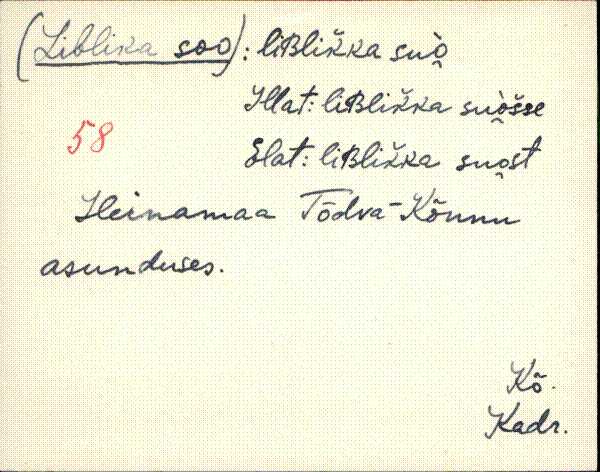 (Liblika soo): liʙlikka suo̯
Illat: liʙlikka suo̯sse
58
Elat: liʙlikka suo̯st
Heinamaa Tõdva-Kõnnu
asunduses.
Kõ.
Kadr.